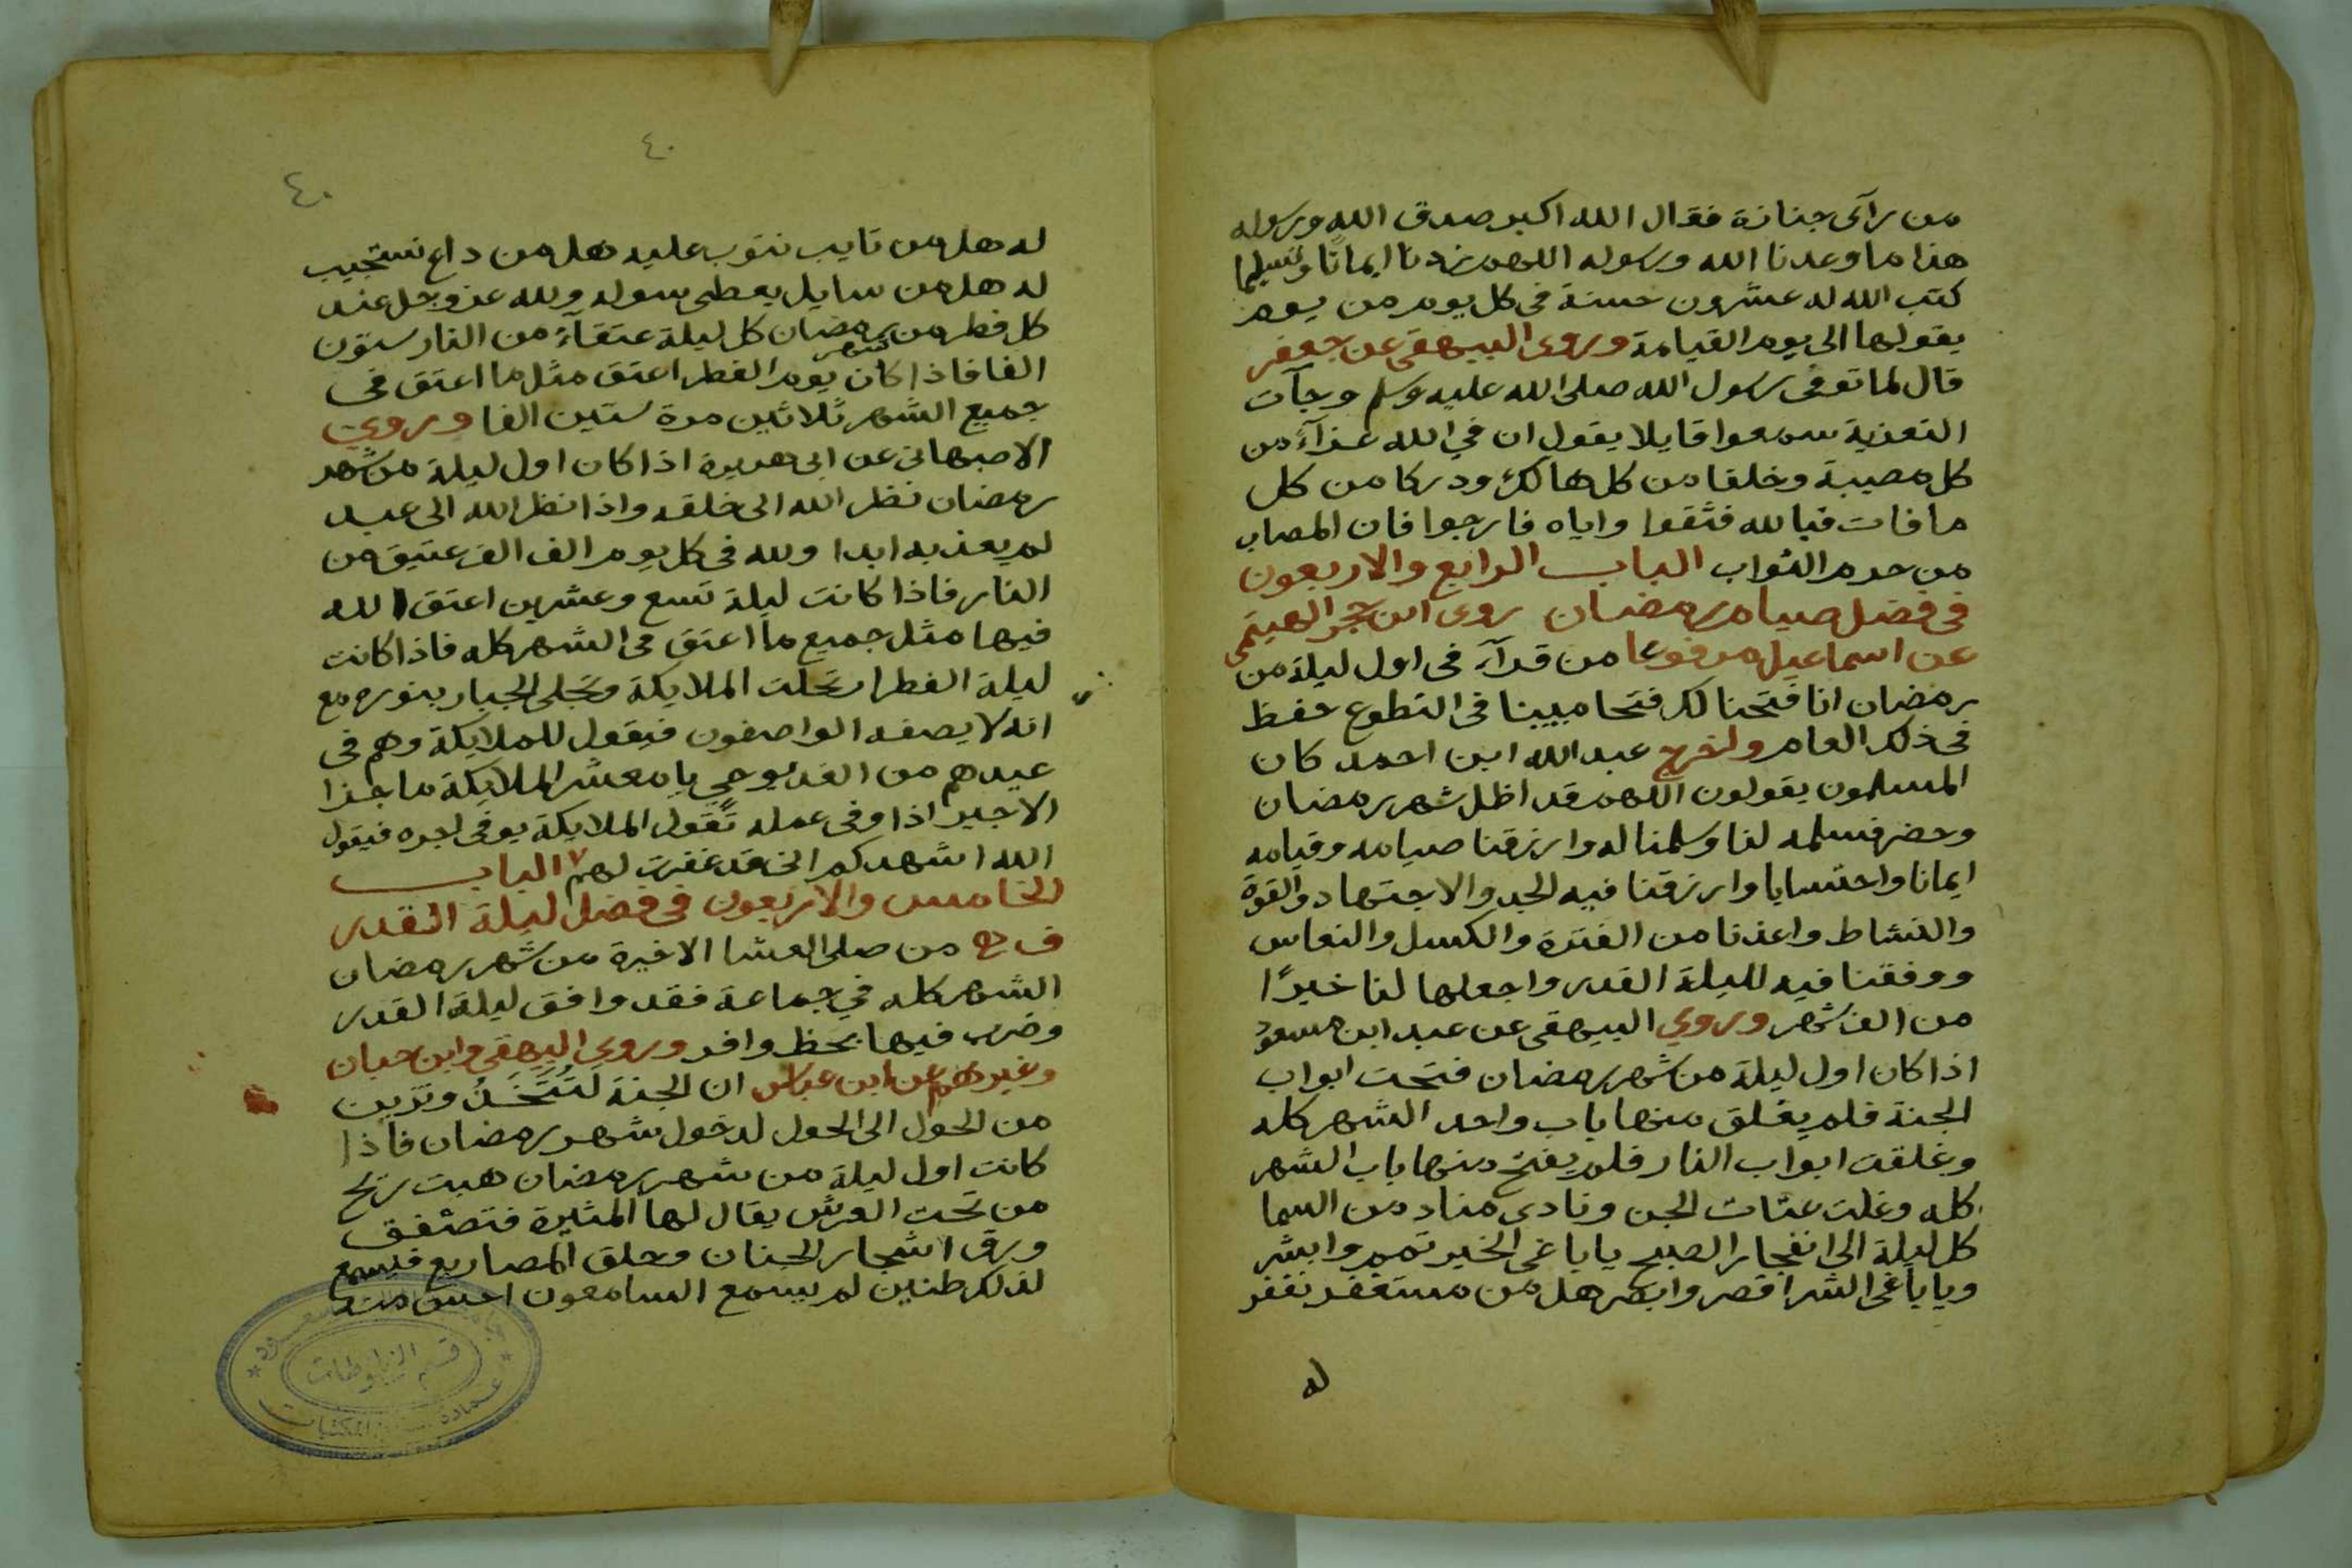 من رآى جنازة فقال الله اكبر صدق الله ورسوله
هذا ما وعدنا الله ورسوله اللهم زدنا ايمانًا وتسليما
كتب الله له عشرون حسنة فى كل يوم من يوم
يقولها الى يوم القيامة وروى البيهقى عن جعفر
قال لما توفى رسول الله صلى الله عليه وسلم وجآت
التعزية سمعوا قايلا يقول ان في الله عزآء من
كل مصيبة وخلفا من كل هالك ودركا من كل
ما فات فبالله فثقوا واياه فارجوا فان المصاب
من حرم الثواب الباب الرابع والاربعون
فى فضل صيام رمضان روى ابن حجر الهيتمى
عن اسماعيل مرفوعا من قرآء فى اول ليلة من
رمضان انا فتحنا لك فتحا مبينا فى التطوع حفظ
فى ذلك العام واخرج عبد الله ابن احمد كان
المسلمون يقولون اللهم قد اظل شهر رمضان
وحضر فسلمه لنا وسلمنا له وارزقنا صيامه وقيامه
ايمانا واحتسابا وارزقنا فيه الجد والاجتهاد والقوة
والنشاط واعذنا من الفترة والكسل والنعاس
ووفقنا فيه لليلة القدر واجعلها لنا خيرًا
من الف شهر وروي البيهقى عن عبد ابن مسعود
اذا كان اول ليلة من شهر رمضان فتحت ابواب
الجنة فلم يغلق منها باب واحد الشهر كله
وغلقت ابواب النار فلم يفتح منها باب الشهر
كله وغلت عتات الجن ونادى مناد من السما
كل ليلة الى انفجار الصبح يا باغى الخير تمم وابشر
ويا باغى الشر اقصر وابصر هل من مستغفر نغفر
له
٤٠
٤٠
له هل من تايب نتوب عليه هل من داع نستجيب
له هل من سايل يعطى سوله ولله عز وجل عند
كل فطر من شهر رمضان كل ليلة عتقآء من النار ستون
الفا فاذا كان يوم الفطر اعتق مثل ما اعتق فى
جميع الشهر ثلاثين مرة ستين الفا وروي
الاصبهانى عن ابى هريرة اذا كان اول ليلة من شهر
رمضان نظر الله الى خلقه واذا نظر الله الى عبد
لم يعذبه ابدا ولله فى كل يوم الف الف عتيق من
النار فاذا كانت ليلة تسع وعشرين اعتق الله
فيها مثل جميع ما اعتق فى الشهر كله فاذا كانت
ليلة الفطر ارتحلت الملايكة وتجلى الجبار بنوره مع
انه لا يصفه الواصفون فيقول للملايكة وهم فى
عيدهم من الغد يوحي يا معشر الملايكة ما جزا
الاجير اذا وفى عمله تقول الملايكة يوفى اجره فيقول
الله اشهدكم انى قد غفرت لهم الباب
الخامس والاربعون فى فضل ليلة القدر
من صلى العشا الاخيرة من شهر رمضان
الشهر كله في جماعة فقد وافق ليلة القدر
وضرب فيها بحظ وافر وروي البيهقى وابن حبان
وغيرهم عن ابن عباس ان الجنة لتتخذ وتزين
من الحول الى الحول لدخول شهر رمضان فاذا
كانت اول ليلة من شهر رمضان هبت ريح
من تحت العرش يقال لها المثيرة فتصفق
ورق اشجار الجنان وحلق المصاريع فيسمع
لذلك طنين لم يسمع السامعون احسن منه
قسم المخطوطات